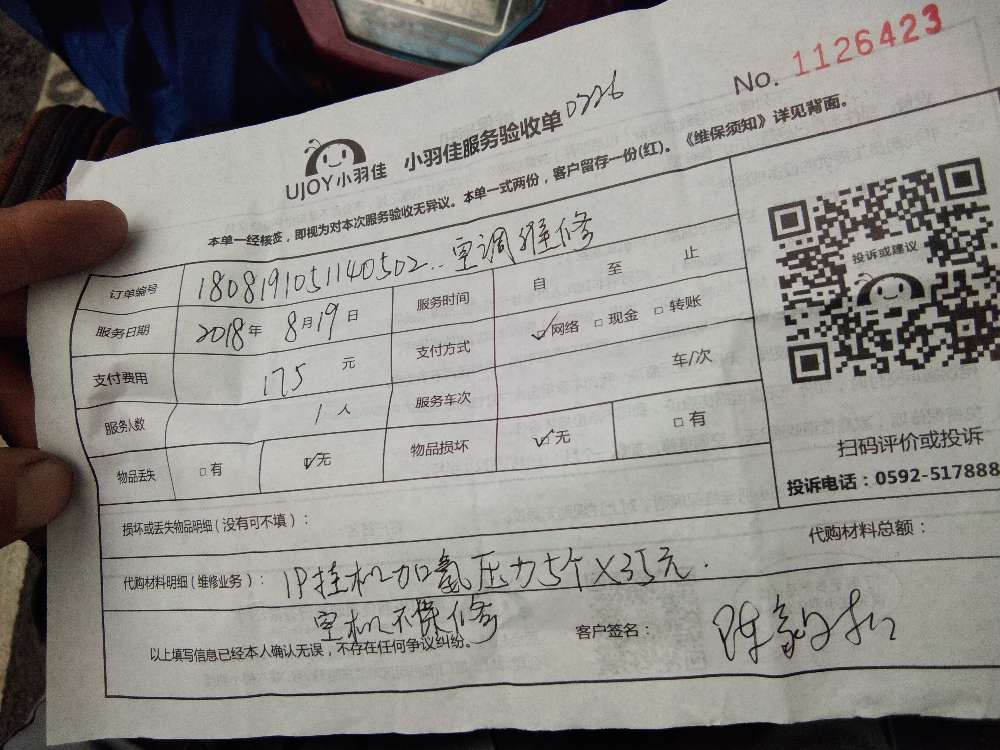 No. 1126423
UJOY小羽佳 小羽佳服务验收单 0226
本单一经核签，即视为对本次服务验收无异议。本单一式两份，客户留存一份(红)。《维保须知》详见背面。
订单编号 1808191051140502. 空调维修
服务日期 2018年 8月19日 服务时间 自 至 止
支付费用 175 元 支付方式 ☑网络 □现金 □转账
服务人数 1 人 服务车次 车/次
物品丢失 □有 ☑无 物品损坏 ☑无 □有
投诉或建议
扫码评价或投诉
投诉电话：0592-517888
损坏或丢失物品明细(没有可不填)：
代购材料明细(维修业务)： 1P挂机加氟压力5个×35元. 代购材料总额：
空机不保修
以上填写信息已经本人确认无误，不存在任何争议纠纷。 客户签名：